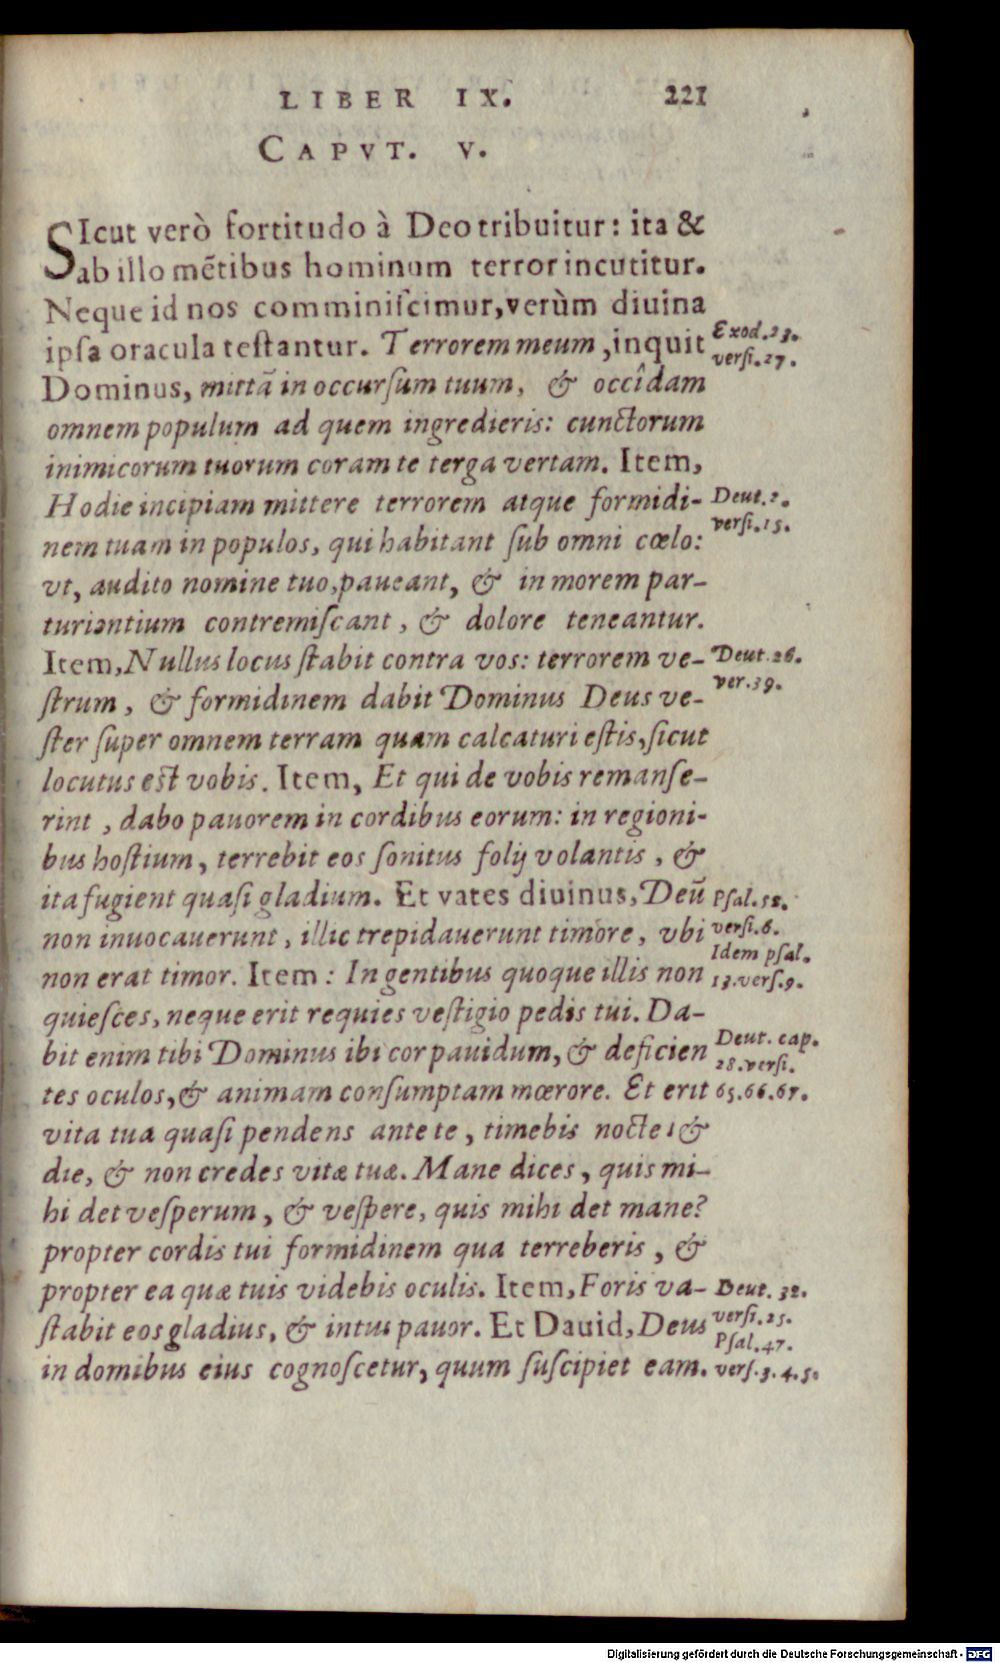 LIBER IX. 221
CAPVT. V.
SIcut verò fortitudo à Deo tribuitur: ita &
ab illo mẽtibus hominum terror incutitur.
Neque id nos comminiſcimur, verùm diuina
ipſa oracula teſtantur. Terrorem meum, inquit
Exod. 23.
verſi. 27.
Dominus, mittã in occurſum tuum, & occîdam
omnem populum ad quem ingredieris: cunctorum
inimicorum tuorum coram te terga vertam. Item,
Hodie incipiam mittere terrorem atque formidi-
Deut. 2.
verſi. 15.
nem tuam in populos, qui habitant ſub omni cœlo:
vt, audito nomine tuo, paueant, & in morem par-
turientium contremiſcant, & dolore teneantur.
Item, Nullus locus ſtabit contra vos: terrorem ve-
Deut. 26.
ver. 39.
ſtrum, & formidinem dabit Dominus Deus ve-
ſter ſuper omnem terram quam calcaturi eſtis, ſicut
locutus eſt vobis. Item, Et qui de vobis remanſe-
rint, dabo pauorem in cordibus eorum: in regioni-
bus hoſtium, terrebit eos ſonitus folij volantis, &
ita fugient quaſi gladium. Et vates diuinus, Deũ
Pſal. 52.
verſi. 6.
non inuocauerunt, illic trepidauerunt timore, vbi
Idem pſal.
13. verſ. 9.
non erat timor. Item: In gentibus quoque illis non
quieſces, neque erit requies veſtigio pedis tui. Da-
bit enim tibi Dominus ibi cor pauidum, & deficien
Deut. cap.
28. verſi.
65. 66. 67.
tes oculos, & animam conſumptam mœrore. Et erit
vita tua quaſi pendens ante te, timebis nocte, &
die, & non credes vitæ tuæ. Mane dices, quis mi-
hi det veſperum, & veſpere, quis mihi det mane?
propter cordis tui formidinem qua terreberis, &
propter ea quæ tuis videbis oculis. Item, Foris va-
Deut. 32.
verſi. 25.
ſtabit eos gladius, & intus pauor. Et Dauid, Deus
Pſal. 47.
verſ. 3. 4. 5.
in domibus eius cognoſcetur, quum ſuſcipiet eam.
Digitalisierung gefördert durch die Deutsche Forschungsgemeinschaft - DFG